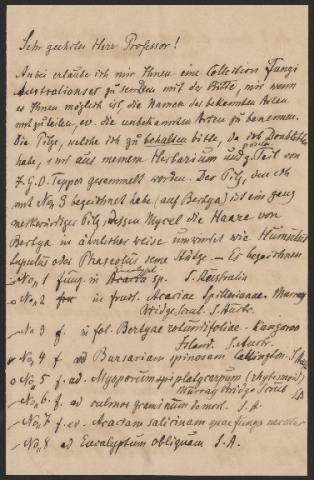 Sehr geehrter Herr Professor!
Anbei erlaube ich mir Ihnen eine Collection Fungi
Australienses zu senden mit der Bitte, mir wenn
es Ihnen möglich ist, die Namen der bekannten Arten
mitzuteilen, ev. die unbekannten Arten zu benennen.
Die Pilze, welche ich zu behalten bitte, da ich Doubletten
habe, sind aus meinem Herbarium und z. Teil von
J. G. O. Tepper gesammelt worden. Der Pilz, den ich
mit No. 3 bezeichnet habe (auf Bertya) ist ein ganz
merkwürdiger Pilz, dessen Mycel die Haare von
Bertya in ähnlicher Weise umwindet wie Humulus
Lupulus oder Phaseolus seine Stütze. — Es bezeichnen
No. 1 fung. in Eucalypt. sp. S. Australia
No. 2 in fruct. Acaciae Spillerianae. Murray
Bridge Scrub. S. Austr.
No 3 f. in fol. Bertyae rotundifoliae. Kangaroo
Island. S. Austr.
No. 4 f. ad Bursariam spinosam Callington S. Austr.
No. 5 f. ad. Myoporum platycarpum (rhytismoid)
Murray Bridge Scrub S.A.
No. 6. f. ad culmos graminum demort. S. A.
No. 7 f. ad. Acaciam salicinam
No. 8 ad Eucalyptum obliquam S. A.